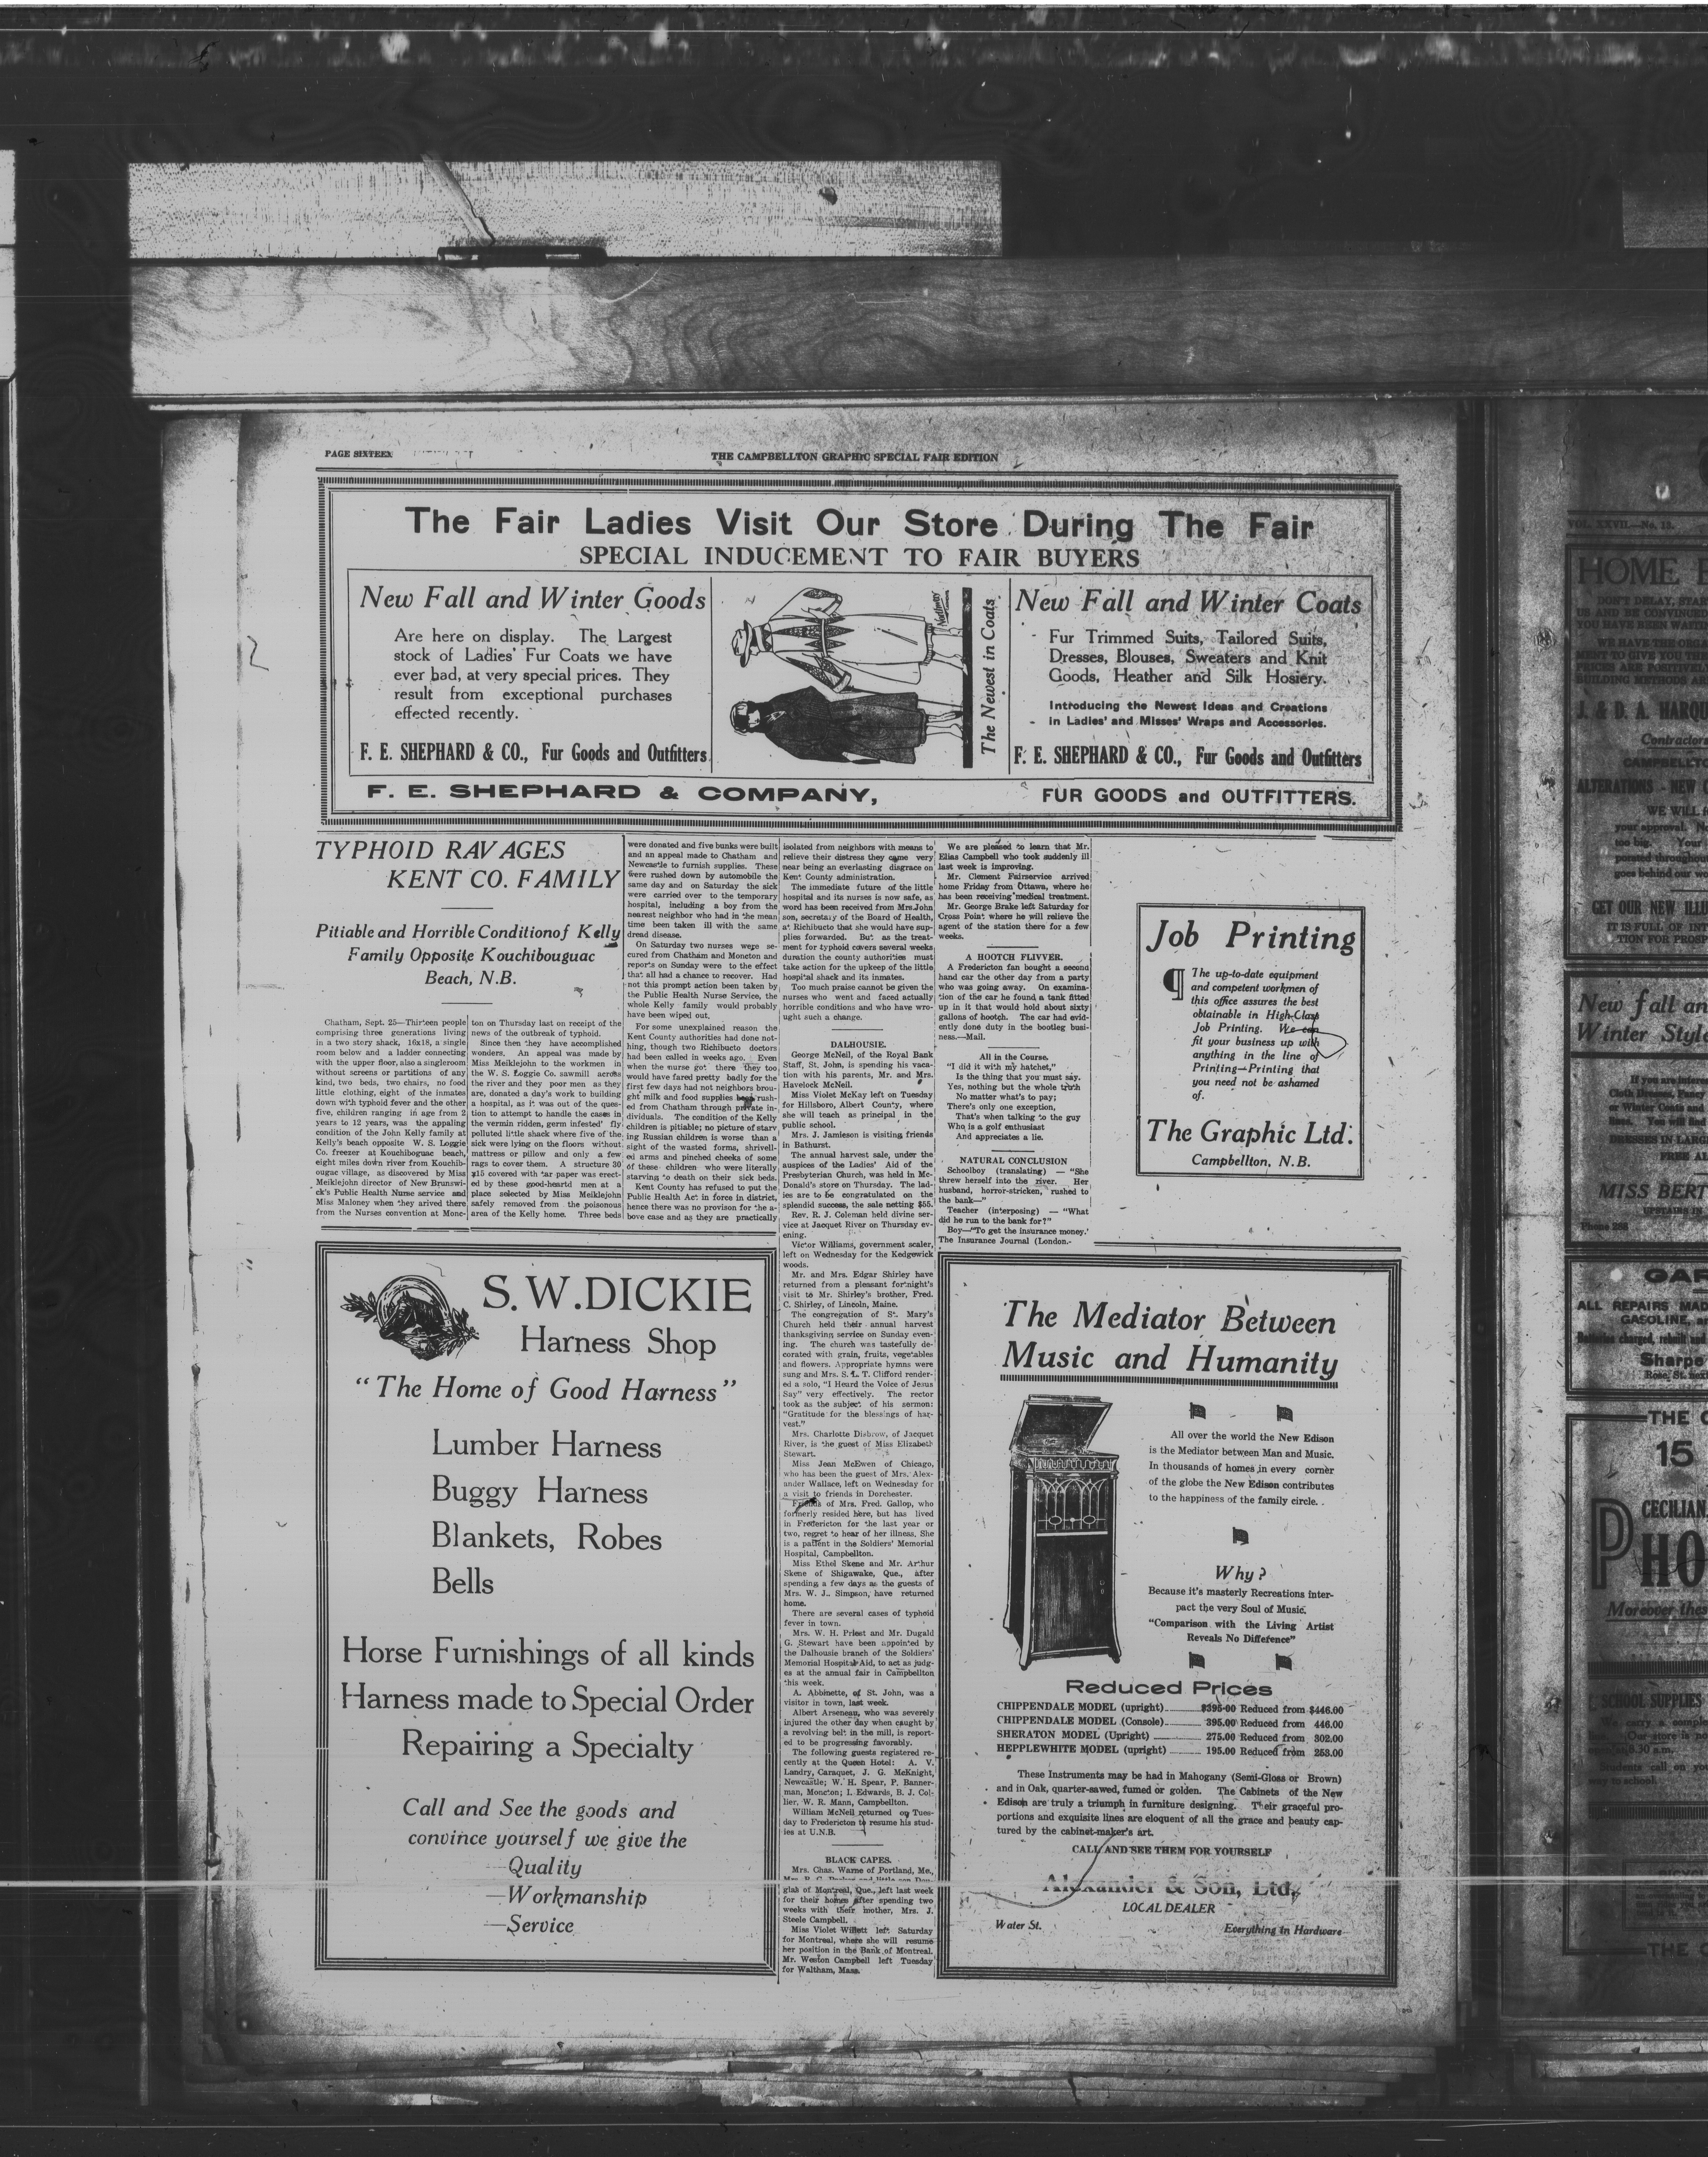 PAGE SIXTEEN
THE CAMPBELLTON GRAPHIC SPECIAL FAIR EDITION
The Fair Ladies Visit Our Store During The Fair
SPECIAL INDUCEMENT TO FAIR BUYERS
New Fall and Winter Goods
Are here on display. The Largest
stock of Ladies' Fur Coats we have
ever had, at very special prices. They
result from exceptional purchases
effected recently.
F. E. SHEPHARD & CO., Fur Goods and Outfitters
The Newest in Coats
New Fall and Winter Coats
Fur Trimmed Suits, Tailored Suits,
Dresses, Blouses, Sweaters and Knit
Goods, Heather and Silk Hosiery.
Introducing the Newest Ideas and Creations
in Ladies' and Misses' Wraps and Accessories.
F. E. SHEPHARD & CO., Fur Goods and Outfitters
F. E. SHEPHARD & COMPANY, FUR GOODS and OUTFITTERS.
TYPHOID RAVAGES
KENT CO. FAMILY
Pitiable and Horrible Conditionof Kelly
Family Opposite Kouchibouguac
Beach, N.B.
Chatham, Sept. 25—Thirteen people
comprising three generations living
in a two story shack, 16x18, a single
room below and a ladder connecting
with the upper floor, also a singleroom
without screens or partitions of any
kind, two beds, two chairs, no food
little clothing, eight of the inmates
down with typhoid fever and the other
five, children ranging in age from 2
years to 12 years, was the appaling
condition of the John Kelly family at
Kelly's beach opposite W. S. Loggie
Co. freezer at Kouchiboguac beach,
eight miles down river from Kouchib-
ougac village, as discovered by Miss
Meiklejohn director of New Brunswi-
ck's Public Health Nurse service and
Miss Maloney when they arived there
from the Nurses convention at Monc-
ton on Thursday last on receipt of the
news of the outbreak of typhoid.
Since then they have accomplished
wonders. An appeal was made by
Miss Meiklejohn to the workmen in
the W. S. Loggie Co. sawmill across
the river and they poor men as they
are, donated a day's work to building
a hospital, as it was out of the ques-
tion to attempt to handle the cases in
the vermin ridden, germ infested fly
polluted little shack where five of the
sick were lying on the floors without
mattress or pillow and only a few
rags to cover them. A structure 30
x15 covered with tar paper was erect-
ed by these good-heartd men at a
place selected by Miss Meiklejohn
safely removed from the poisonous
area of the Kelly home. Three beds
were donated and five bunks were built
and an appeal made to Chatham and
Newcastle to furnish supplies. These
were rushed down by automobile the
same day and on Saturday the sick
were carried over to the temporary
hospital, including a boy from the
nearest neighbor who had in the mean
time been taken ill with the same
dread disease.
On Saturday two nurses wege se-
cured from Chatham and Moncton and
reports on Sunday were to the effect
that all had a chance to recover. Had
not this prompt action been taken by
the Public Health Nurse Service, the
whole Kelly family would probably
have been wiped out.
For some unexplained reason the
Kent County authorities had done not-
hing, though two Richibucto doctors
had been called in weeks ago. Even
when the nurse got there they too
would have fared pretty badly for the
first few days had not neighbors brou-
ght milk and food supplies been rush-
ed from Chatham through private in-
dividuals. The condition of the Kelly
children is pitiable; no picture of starv
ing Russian children is worse than a
sight of the wasted forms, shrivell-
ed arms and pinched cheeks of some
of these children who were literally
starving to death on their sick beds.
Kent County has refused to put the
Public Health Act in force in district,
hence there was no provison for the a-
bove case and as they are practically
isolated from neighbors with means to
relieve their distress they came very
near being an everlasting disgrace on
Kent County administration.
The immediate future of the little
hospital and its nurses is now safe, as
word has been received from Mrs.John
son, secretary of the Board of Health,
at Richibucto that she would have sup-
plies forwarded. But as the treat-
ment for typhoid covers several weeks
duration the county authorities must
take action for the upkeep of the little
hospital shack and its inmates.
Too much praise cannot be given the
nurses who went and faced actually
horrible conditions and who have wro-
ught such a change.
DALHOUSIE.
George McNeil, of the Royal Bank
Staff, St. John, is spending his vaca-
tion with his parents, Mr. and Mrs.
Havelock McNeil.
Miss Violet McKay left on Tuesday
for Hillsboro, Albert County, where
she will teach as principal in the
public school.
Mrs. J. Jamieson is visiting friends
in Bathurst.
The annual harvest sale, under the
auspices of the Ladies' Aid of the
Presbyterian Church, was held in Mc-
Donald's store on Thursday. The lad-
ies are to be congratulated on the
splendid success, the sale netting $55.
Rev. R. J. Coleman held divine ser-
vice at Jacquet River on Thursday ev-
ening.
Victor Williams, government scaler,
left on Wednesday for the Kedgewick
woods.
Mr. and Mrs. Edgar Shirley have
returned from a pleasant fortnight's
visit to Mr. Shirley's brother, Fred.
C. Shirley, of Lincoln, Maine.
The congregation of St. Mary's
Church held their annual harvest
thanksgiving service on Sunday even-
ing. The church was tastefully de-
corated with grain, fruits, vegetables
and flowers. Appropriate hymns were
sung and Mrs. S. L. T. Clifford render-
ed a solo, "I Heard the Voice of Jesus
Say" very effectively. The rector
took as the subject of his sermon:
"Gratitude for the blessings of har-
vest."
Mrs. Charlotte Disbrow, of Jacquet
River, is the guest of Miss Elizabeth
Stewart.
Miss Jean McEwen of Chicago,
who has been the guest of Mrs. Alex-
ander Wallace, left on Wednesday for
a visit to friends in Dorchester.
Friends of Mrs. Fred. Gallop, who
formerly resided here, but has lived
in Fredericton for the last year or
two, regret to hear of her illness. She
is a patient in the Soldiers' Memorial
Hospital, Campbellton.
Miss Ethel Skene and Mr. Arthur
Skene of Shigawake, Que., after
spending a few days as the guests of
Mrs. W. J.. Simpson, have returned
home.
There are several cases of typhoid
fever in town.
Mrs. W. H. Priest and Mr. Dugald
G. Stewart have been appointed by
the Dalhousie branch of the Soldiers'
Memorial Hospital Aid, to act as judg-
es at the annual fair in Campbellton
this week.
A. Abbinette, of St. John, was a
visitor in town, last week.
Albert Arseneau, who was severely
injured the other day when caught by
a revolving belt in the mill, is report-
ed to be progressing favorably.
The following guests registered re-
cently at the Queen Hotel: A. V.
Landry, Caraquet, J. G. McKnight,
Newcastle; W. H. Spear, P. Banner-
man, Moncton; I. Edwards, B. J. Col-
lier, W. R. Mann, Campbellton.
William McNeil returned on Tues-
day to Fredericton to resume his stud-
ies at U.N.B.
BLACK CAPES.
Mrs. Chas. Warne of Portland, Me.,
glas of Montreal, Que., left last week
for their homes after spending two
weeks with their mother, Mrs. J.
Steele Campbell.
Miss Violet Willett left Saturday
for Montreal, where she will resume
her position in the Bank of Montreal.
Mr. Weston Campbell left Tuesday
for Waltham, Mass.
We are pleased to learn that Mr.
Elias Campbell who took suddenly ill
last week is improving.
Mr. Clement Fairservice arrived
home Friday from Ottawa, where he
has been receiving medical treatment.
Mr. George Brake left Saturday for
Cross Point where he will relieve the
agent of the station there for a few
weeks.
A HOOTCH FLIVVER.
A Fredericton fan bought a second
hand car the other day from a party
who was going away. On examina-
tion of the car he found a tank fitted
up in it that would hold about sixty
gallons of hootch. The car had evid-
ently done duty in the bootleg busi-
ness.—Mail.
All in the Course.
"I did it with my hatchet,"
Is the thing that you must say.
Yes, nothing but the whole truth
No matter what's to pay;
There's only one exception,
That's when talking to the guy
Who is a golf enthusiast
And appreciates a lie.
NATURAL CONCLUSION
Schoolboy (translating) — "She
threw herself into the river. Her
husband, horror-stricken, rushed to
the bank—"
Teacher (interposing) — "What
did he run to the bank for?"
Boy—"To get the insurance money.'
The Insurance Journal (London.-
Job Printing
¶ The up-to-date equipment
and competent workmen of
this office assures the best
obtainable in High-Class
Job Printing. We can
fit your business up with
anything in the line of
Printing—Printing that
you need not be ashamed
of.
The Graphic Ltd.
Campbellton, N.B.
S.W.DICKIE
Harness Shop
"The Home of Good Harness"
Lumber Harness
Buggy Harness
Blankets, Robes
Bells
Horse Furnishings of all kinds
Harness made to Special Order
Repairing a Specialty
Call and See the goods and
convince yourself we give the
—Quality
—Workmanship
—Service
The Mediator Between
Music and Humanity
All over the world the New Edison
is the Mediator between Man and Music.
In thousands of homes in every corner
of the globe the New Edison contributes
to the happiness of the family circle.
Why?
Because it's masterly Recreations inter-
pact the very Soul of Music.
"Comparison with the Living Artist
Reveals No Difference"
Reduced Prices
CHIPPENDALE MODEL (upright) $395.00 Reduced from $446.00
CHIPPENDALE MODEL (Console) 395.00 Reduced from 446.00
SHERATON MODEL (Upright) 275.00 Reduced from 302.00
HEPPLEWHITE MODEL (upright) 195.00 Reduced from 253.00
These Instruments may be had in Mahogany (Semi-Gloss or Brown)
and in Oak, quarter-sawed, fumed or golden. The Cabinets of the New
Edison are truly a triumph in furniture designing. Their graceful pro-
portions and exquisite lines are eloquent of all the grace and beauty cap-
tured by the cabinet-maker's art.
CALL AND SEE THEM FOR YOURSELF
Alexander & Son, Ltd.
LOCAL DEALER
Water St. Everything in Hardware
VOL. XXVII.—No. 13.
HOME
DON'T DELAY, STAR
US AND BE CONVINCED
YOU HAVE BEEN WAITIN
WE HAVE THE ORGA
MENT TO GIVE YOU THE
PRICES ARE POSITIVEL
BUILDING METHODS AR
J. & D. A. HARQU
Contractors
CAMPBELLTO
ALTERATIONS - NEW C
WE WILL
your approval.
too big. Your
porated throughout
goes behind our wo
GET OUR NEW ILLU
IT IS FULL OF INT
TION FOR PROSP
New fall an
Winter Style
If you are inter
Cloth Dresses, Fancy
or Winter Coats and
lines. You will find
DRESSES IN LARGE
FREE AL
MISS BERT
UPSTAIRS IN
Phone 268
GAR
ALL REPAIRS MAD
GASOLINE,
Batteries charged, rebuilt and
Sharpe
Rose, St. next
THE C
15
CECILIAN
PHO
Moreover thes
SCHOOL SUPPLIES
We carry a comple
Our store is
8.30 a.m.
Students call on you
way to school.
THE C